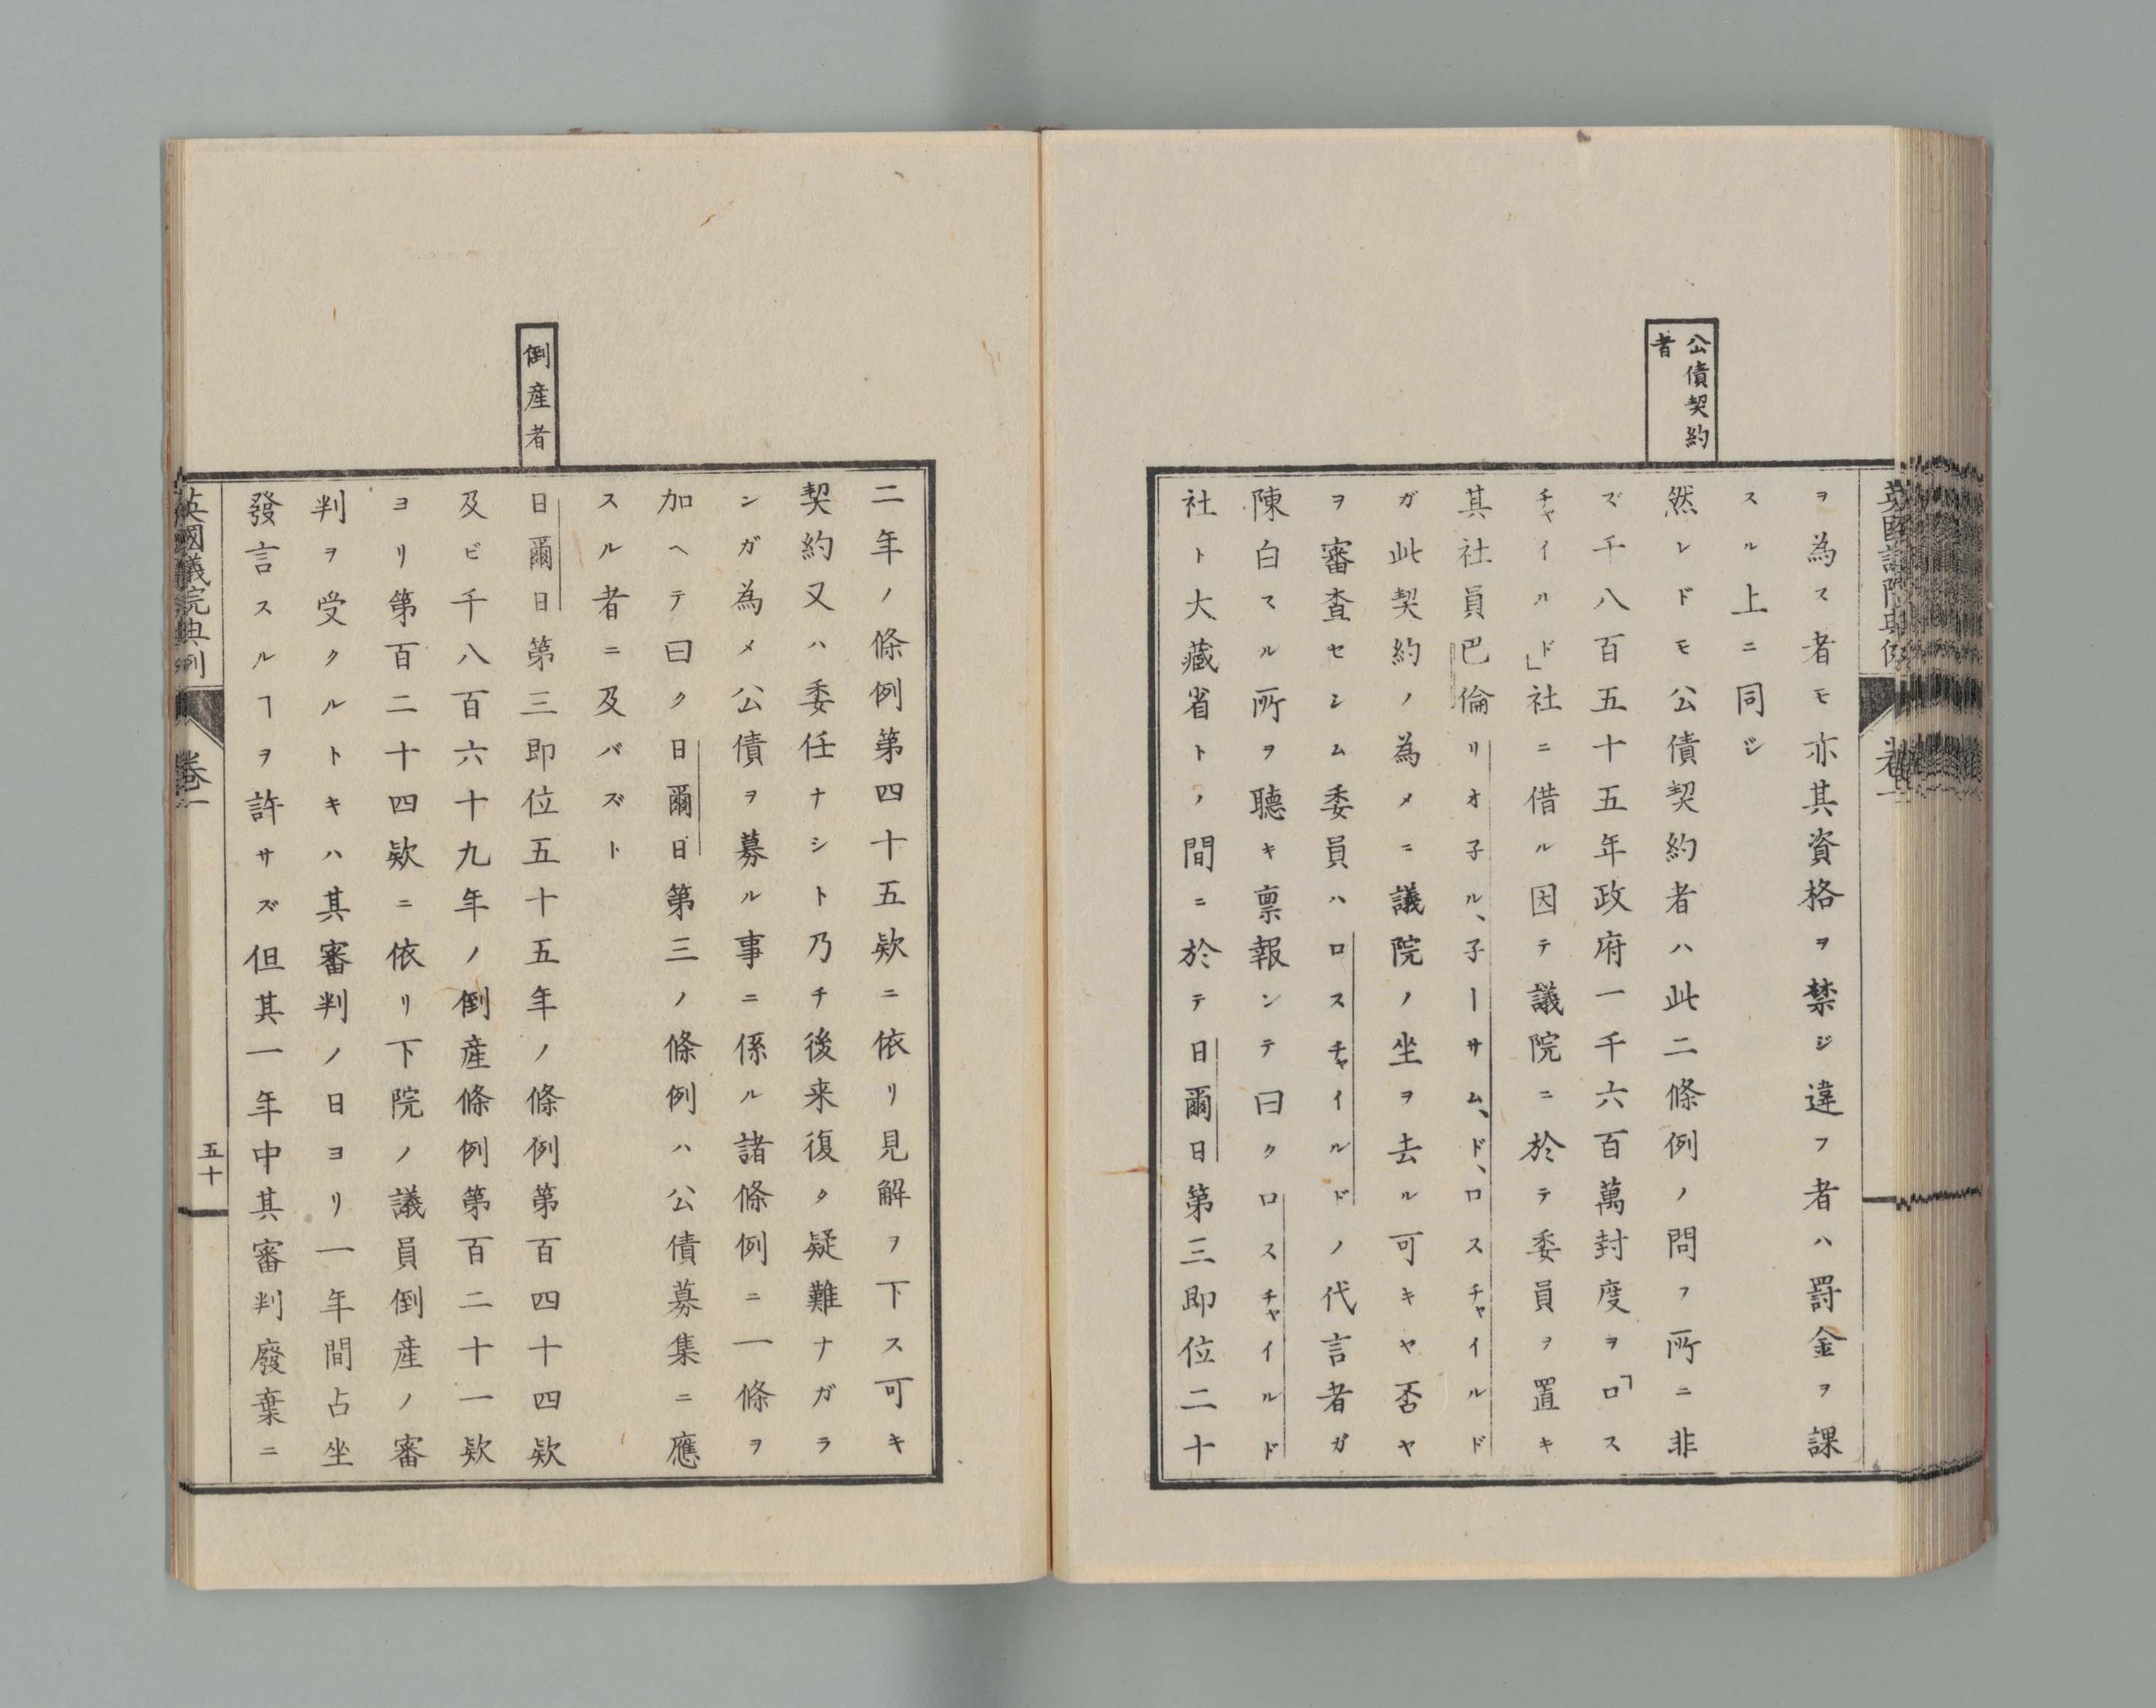 公債契約
者
ヲ為ス者モ亦其資格ヲ禁ジ違フ者ハ罸金ヲ課
スル上ニ同ジ
然レドモ公債契約者ハ此二條例ノ問フ所ニ非
ズ千八百五十五年政府一千六百萬封度ヲ「ロス
チャイルド」社ニ借ル因テ議院ニ於テ委員ヲ置キ
其社員巴倫リオ子ル、子ーサム、ド、ロスチャイルド
ガ此契約ノ為メニ議院ノ坐ヲ去ル可キヤ否ヤ
ヲ審査セシム委員ハロスチャイルドノ代言者ガ
陳白スル所ヲ聽キ稟報シテ曰クロスチャイルド
社ト大藏省トノ間ニ於テ日爾日第三即位二十
倒産者
二年ノ條例第四十五欵ニ依リ見解ヲ下ス可キ
契約又ハ委任ナシト乃チ後来復タ疑難ナガラ
シガ為メ公債ヲ募ル事ニ係ル諸條例ニ一條ヲ
加ヘテ曰ク日爾日第三ノ條例ハ公債募集ニ應
スル者ニ及バズト
日爾日第三即位五十五年ノ條例第百四十四欵
及ビ千八百六十九年ノ倒産條例第百二十一欵
ヨリ第百二十四欵ニ依リ下院ノ議員倒産ノ審
判ヲ受クルトキハ其審判ノ日ヨリ一年間占坐
發言スルヿヲ許サズ但其一年中其審判廢棄ニ
英國議院典例
卷一
五十